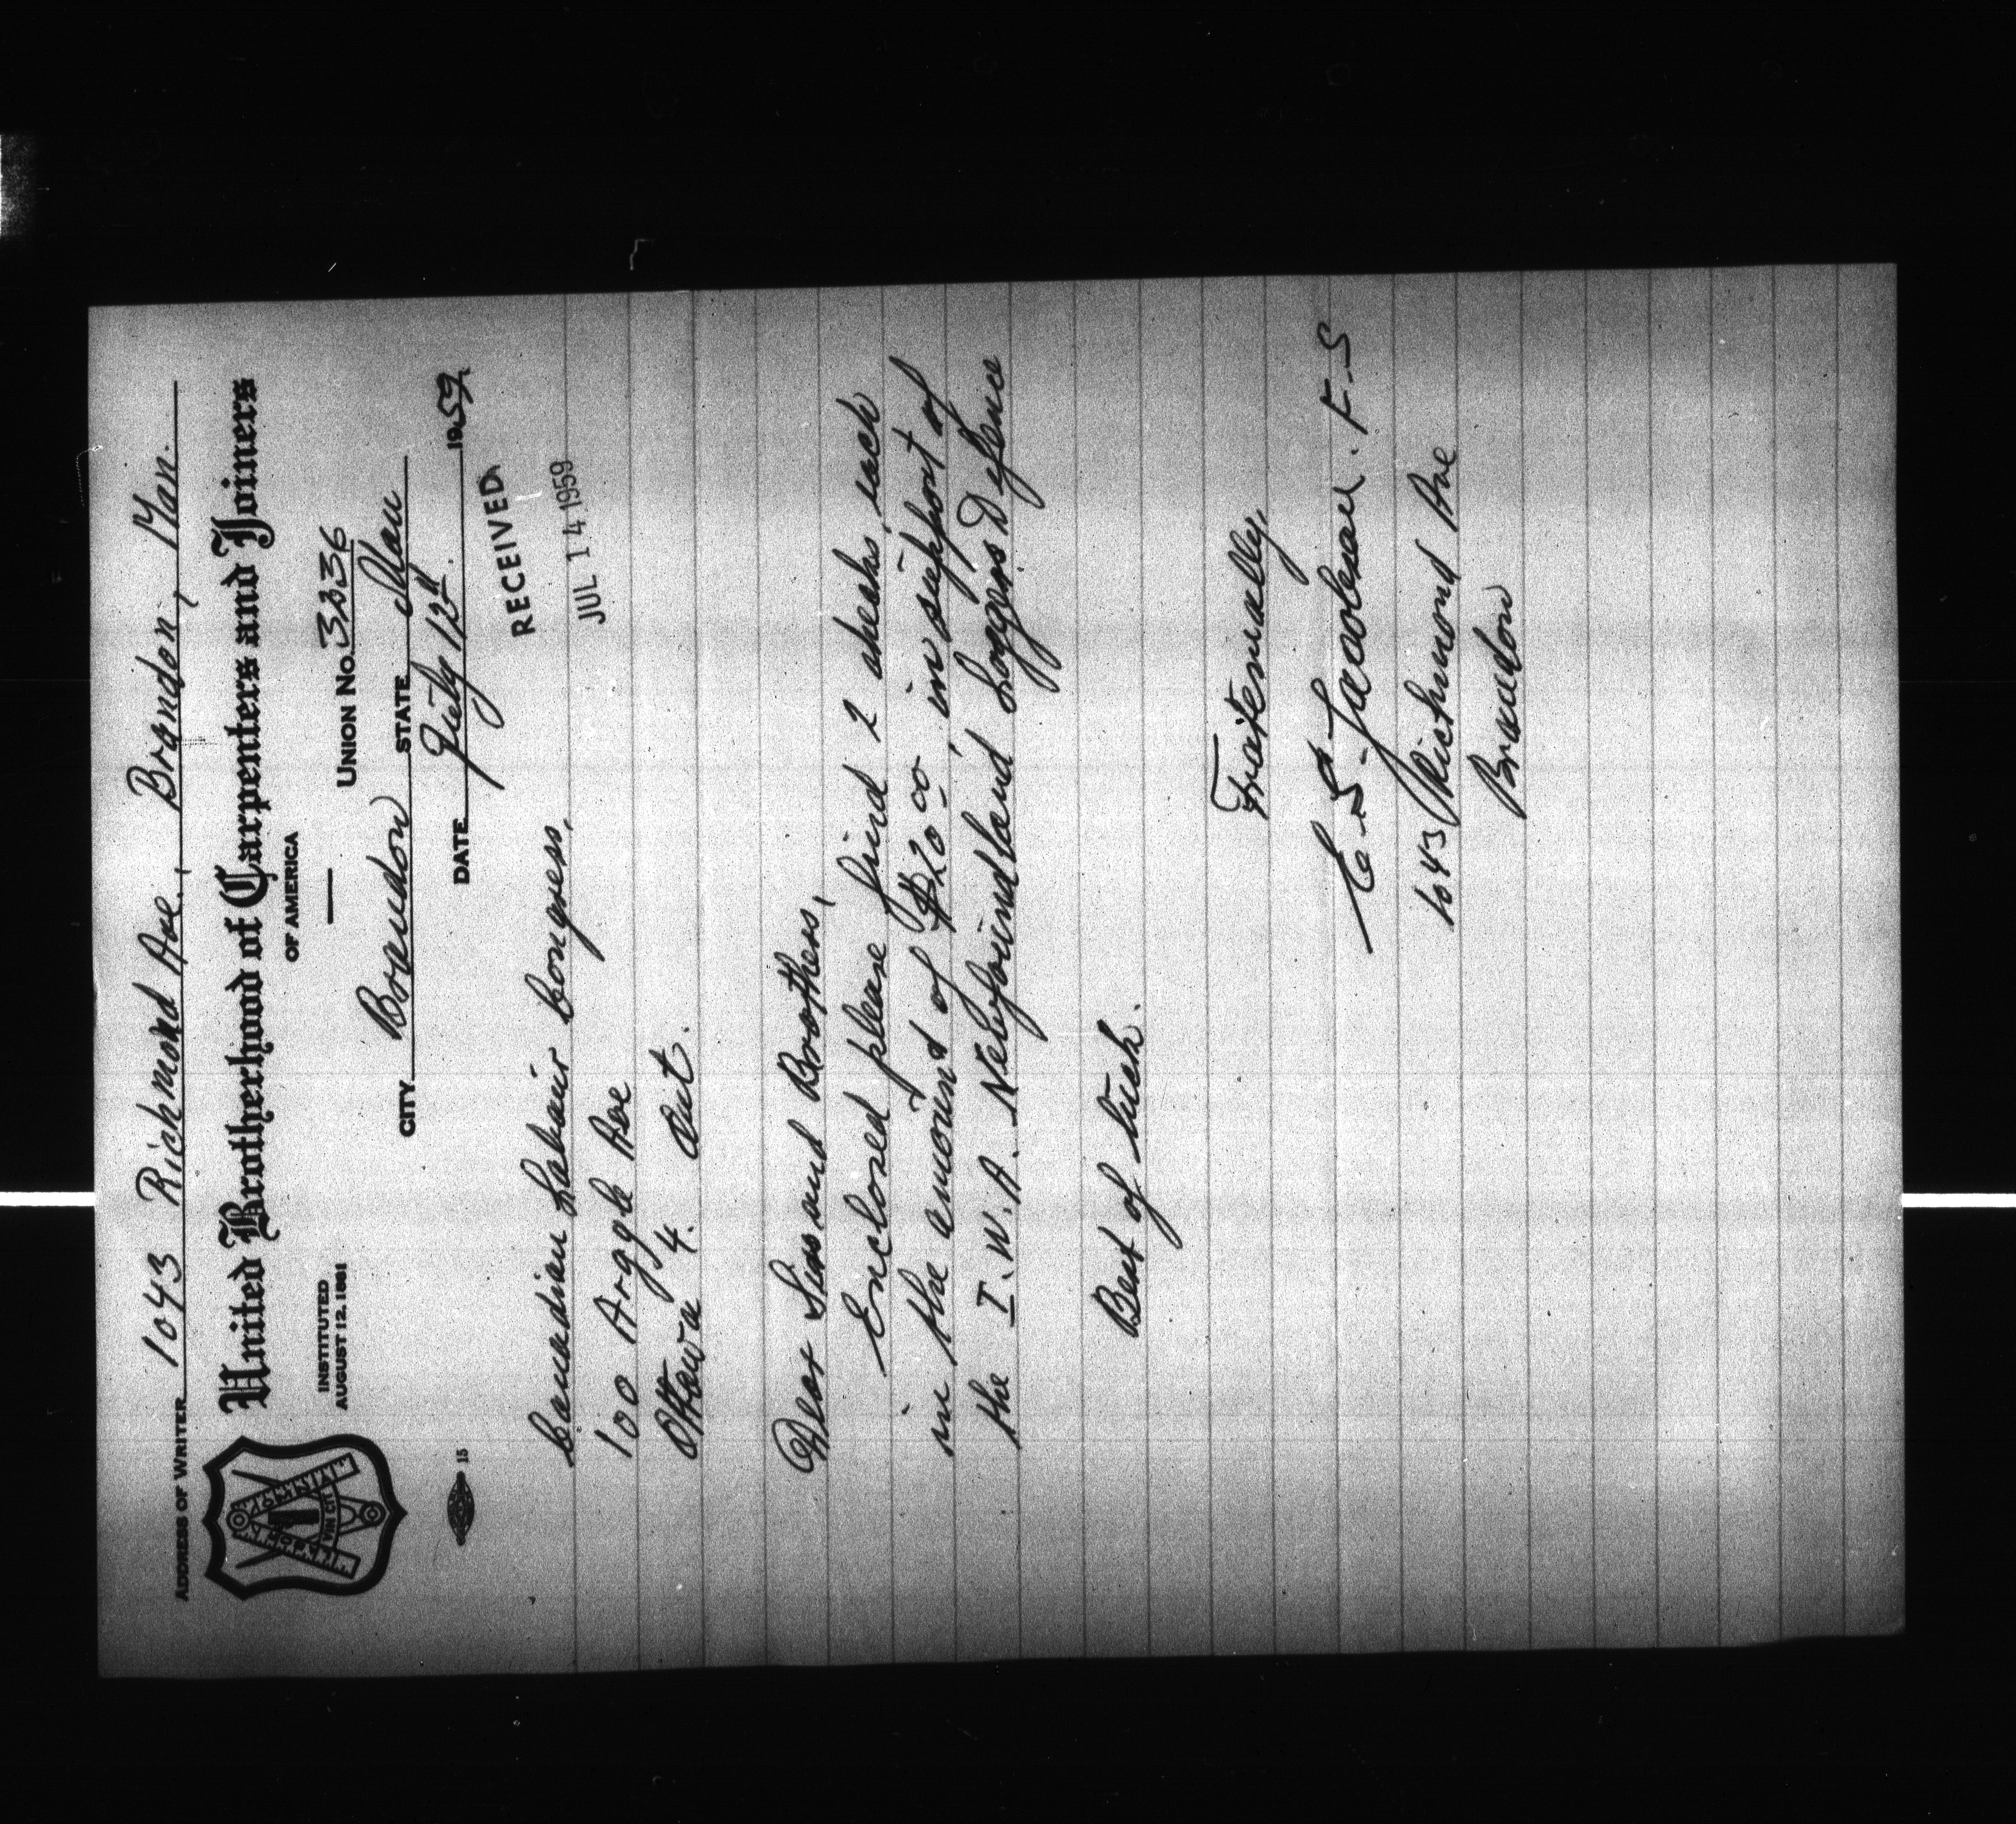 ADDRESS OF WRITER 1043 Richmond Ave., Brandon, Man.
United Brotherhood of Carpenters and Joiners
OF AMERICA
INSTITUTED
AUGUST 12. 1881
UNION No. 3336
CITY Brandon STATE Man
DATE July 12th 1959
15
RECEIVED
JUL 14 1959
Canadian Labour Congress,
100 Argyle Ave
Ottawa 4. Ont.
Dear Sirs and Brothers,
Enclosed please find 2 checks, each
in the amount of $20.00, in support of
the I.W.A. Newfoundland Loggers Defence
Best of luck.
Fraternally,
E. S. Jacobson. F.S
1043 Richmond Ave
Brandon